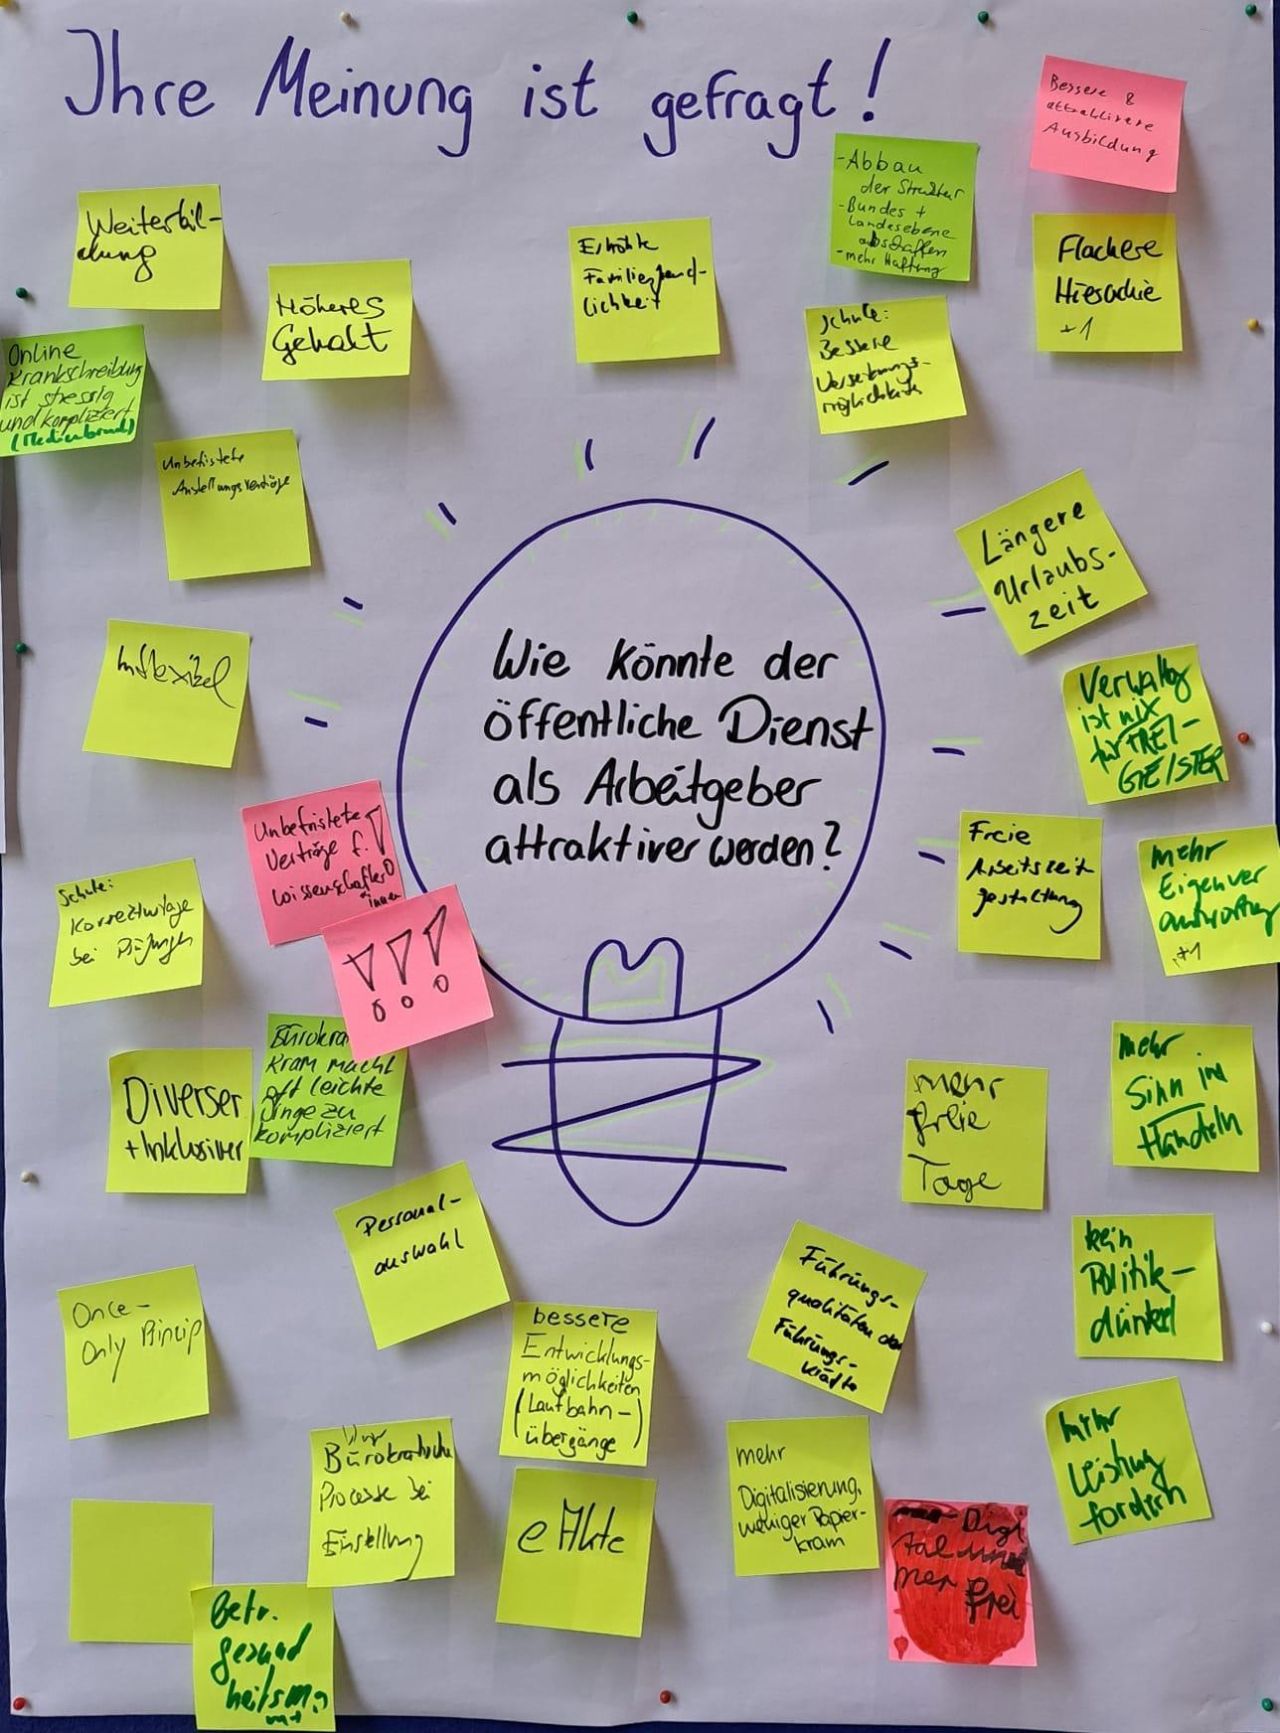 Ihre Meinung ist gefragt!
Bessere &
attraktivere
Ausbildung
- Abbau
der Struktur
- Bundes +
Landesebene
abschaffen
- mehr Haftung
Weiterbil-
dung
Höheres
Gehalt
Erhöhte
Familienfreund-
lichkeit
Flachere
Hierachie
+1
Schule:
Bessere
Versetzungs-
möglichkeit
Online
Krankschreibung
ist stressig
und kompliziert
(Medienbruch)
Unbefistete
Anstellungsverträge
Längere
Urlaubs-
zeit
Inflexibel
Wie könnte der
öffentliche Dienst
als Arbeitgeber
attraktiver werden?
Verwaltg
ist nix
für FREI-
GEISTER
Unbefristete
Verträge f.
Wissenschaftler
*innen
!!!
Freie
Arbeitszeit
gestaltung
mehr
Eigenver
antwortung
+1
Schule:
Korrekturtage
bei Prüfungen
Diverser
+ Inklusiver
Bürokra
Kram macht
oft leichte
Dinge zu
kompliziert
mehr
freie
Tage
mehr
Sinn im
Handeln
Personal-
auswahl
Führungs-
qualitäten der
Führungs-
kräfte
kein
Politik-
dünkel
Once-
Only Princip
bessere
Entwicklungs-
möglichkeiten
(Laufbahn-
übergänge)
Bürokratische
Prozesse bei
Einstellung
eAkte
mehr
Digitalisierung,
weniger Papier-
kram
mehr
Leistung
fordern
Digi
tal im
mer frei
Betr.
gesund
heitsm.